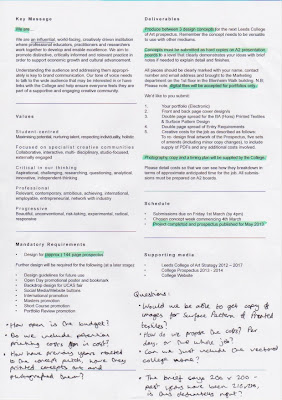 Key Message
We are...
We are an influential, world-facing, creatively driven institution
where professional educators, practitioners and researchers
work together to develop and enable excellence. We aim to
promote distinctive, critically informed and relevant practice in
order to support economic growth and cultural advancement.
Understanding the audience and addressing them appropri-
ately is key to brand communication. Our tone of voice needs
to talk to the wide audience that may be interested in or have
links with the College and help ensure everyone feels they are
part of a supportive and engaging creative community.
Values
Student centred
Maximising potential, nurturing talent, respecting individuality, holistic
Focused on specialist creative communities
Collaborative, interactive, multi-disciplinary, studio-focused,
externally engaged
Critical in our thinking
Aspirational, challenging, researching, questioning, analytical,
innovative, independent thinking
Professional
Relevant, contemporary, ambitious, achieving, international,
employable, entrepreneurial, network with industry
Progressive
Beautiful, unconventional, risk-taking, experimental, radical,
responsive
Mandatory Requirements
• Design for (approx) 144 page prospectus
Further design will be required for the following (at a later stage)
• Design guidelines for future use
• Open Day promotional poster and bookmark
• Backdrop design for UCAS fair
• Social Media/website buttons
• International promotion
• Masters promotion
• Short Course promotion
• Portfolio Review promotion
• How open is the budget?
• Do we include potential printing costs in cost?
• How have previous years reacted to the concept pitch, have they printed concepts and photographed them?
Deliverables
Produce between 3 design concepts for the next Leeds College
of Art prospectus. Remember the concept needs to be versatile
to use with other mediums.
Concepts must be submitted as hard copies on A2 presentation
boards to a level that clearly demonstrates your ideas with brief
notes if needed to explain detail and finishes.
All pieces should be clearly marked with your name, contact
number and email address and brought to the Marketing
department on the 1st floor in the Blenheim Walk building. N.B.
Please note, digital files will be accepted for portfolios only.
We'd like you to submit:
1. Your portfolio (Electronic)
2. Front and back page cover designs
3. Double page spread for the BA (Hons) Printed Textiles
& Surface Pattern Design
4. Double page spread of Entry Requirements
5. Creative costs for the job described as follows:
To re-design final artwork of the Prospectus, five sets
of amends (including minor copy changes), to include
supply of PDFs and any additional costs involved.
Photography, copy and a timing plan will be supplied by the College.
Please detail costs so that we can see how they breakdown in
terms of approximate anticipated time for the job. All submis-
sions must be prepared on A2 boards.
Schedule
• Submissions due on Friday 1st March (by 4pm)
• Chosen concept week commencing 4th March
• Project completed and prospectus published for May 2013
Supporting media
• Leeds College of Art Strategy 2012 – 2017
• College Prospectus 2013 - 2014
• College Website
Questions:
• Would we be able to get copy & images for Surface Pattern & Printed textiles?
• How do we propose the costs? Per day or the whole job?
• Can we just include the vectored college name?
• The brief says 200 x 200 - past years have been 210,
is this definitely right?